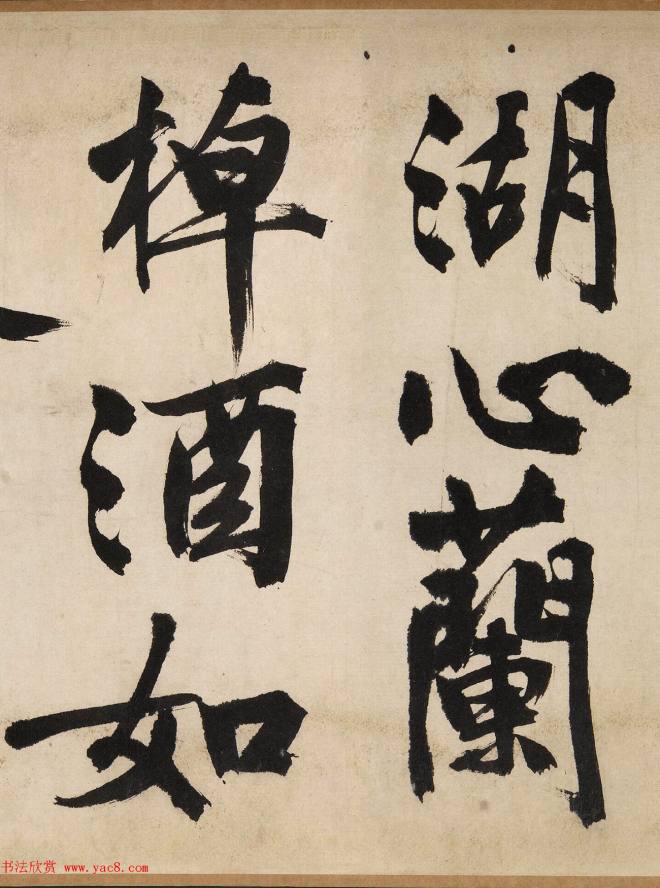 湖心蘭
棹酒如
书法欣赏 www.yac8.com